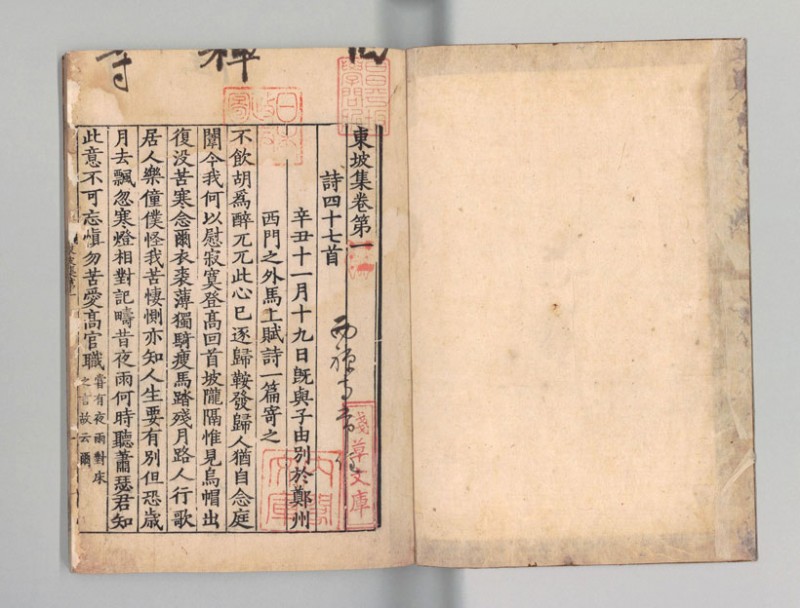 西禪寺
東坡集卷第一
詩四十七首
辛丑十一月十九日旣與子由別於鄭州
西門之外馬上賦詩一篇寄之
不飲胡爲醉兀兀此心已逐歸鞍發歸人猶自念庭
闈今我何以慰寂寞登髙回首坡隴隔惟見烏帽出
復没苦寒念爾衣裘薄獨騎瘦馬踏殘月路人行歌
居人樂僮僕怪我苦悽惻亦知人生要有別但恐歲
月去飄忽寒燈相對記疇昔夜雨何時聽蕭瑟君知
此意不可忘愼勿苦愛髙官職
嘗有夜雨對床
之言故云爾
淺草文庫
內閣文庫